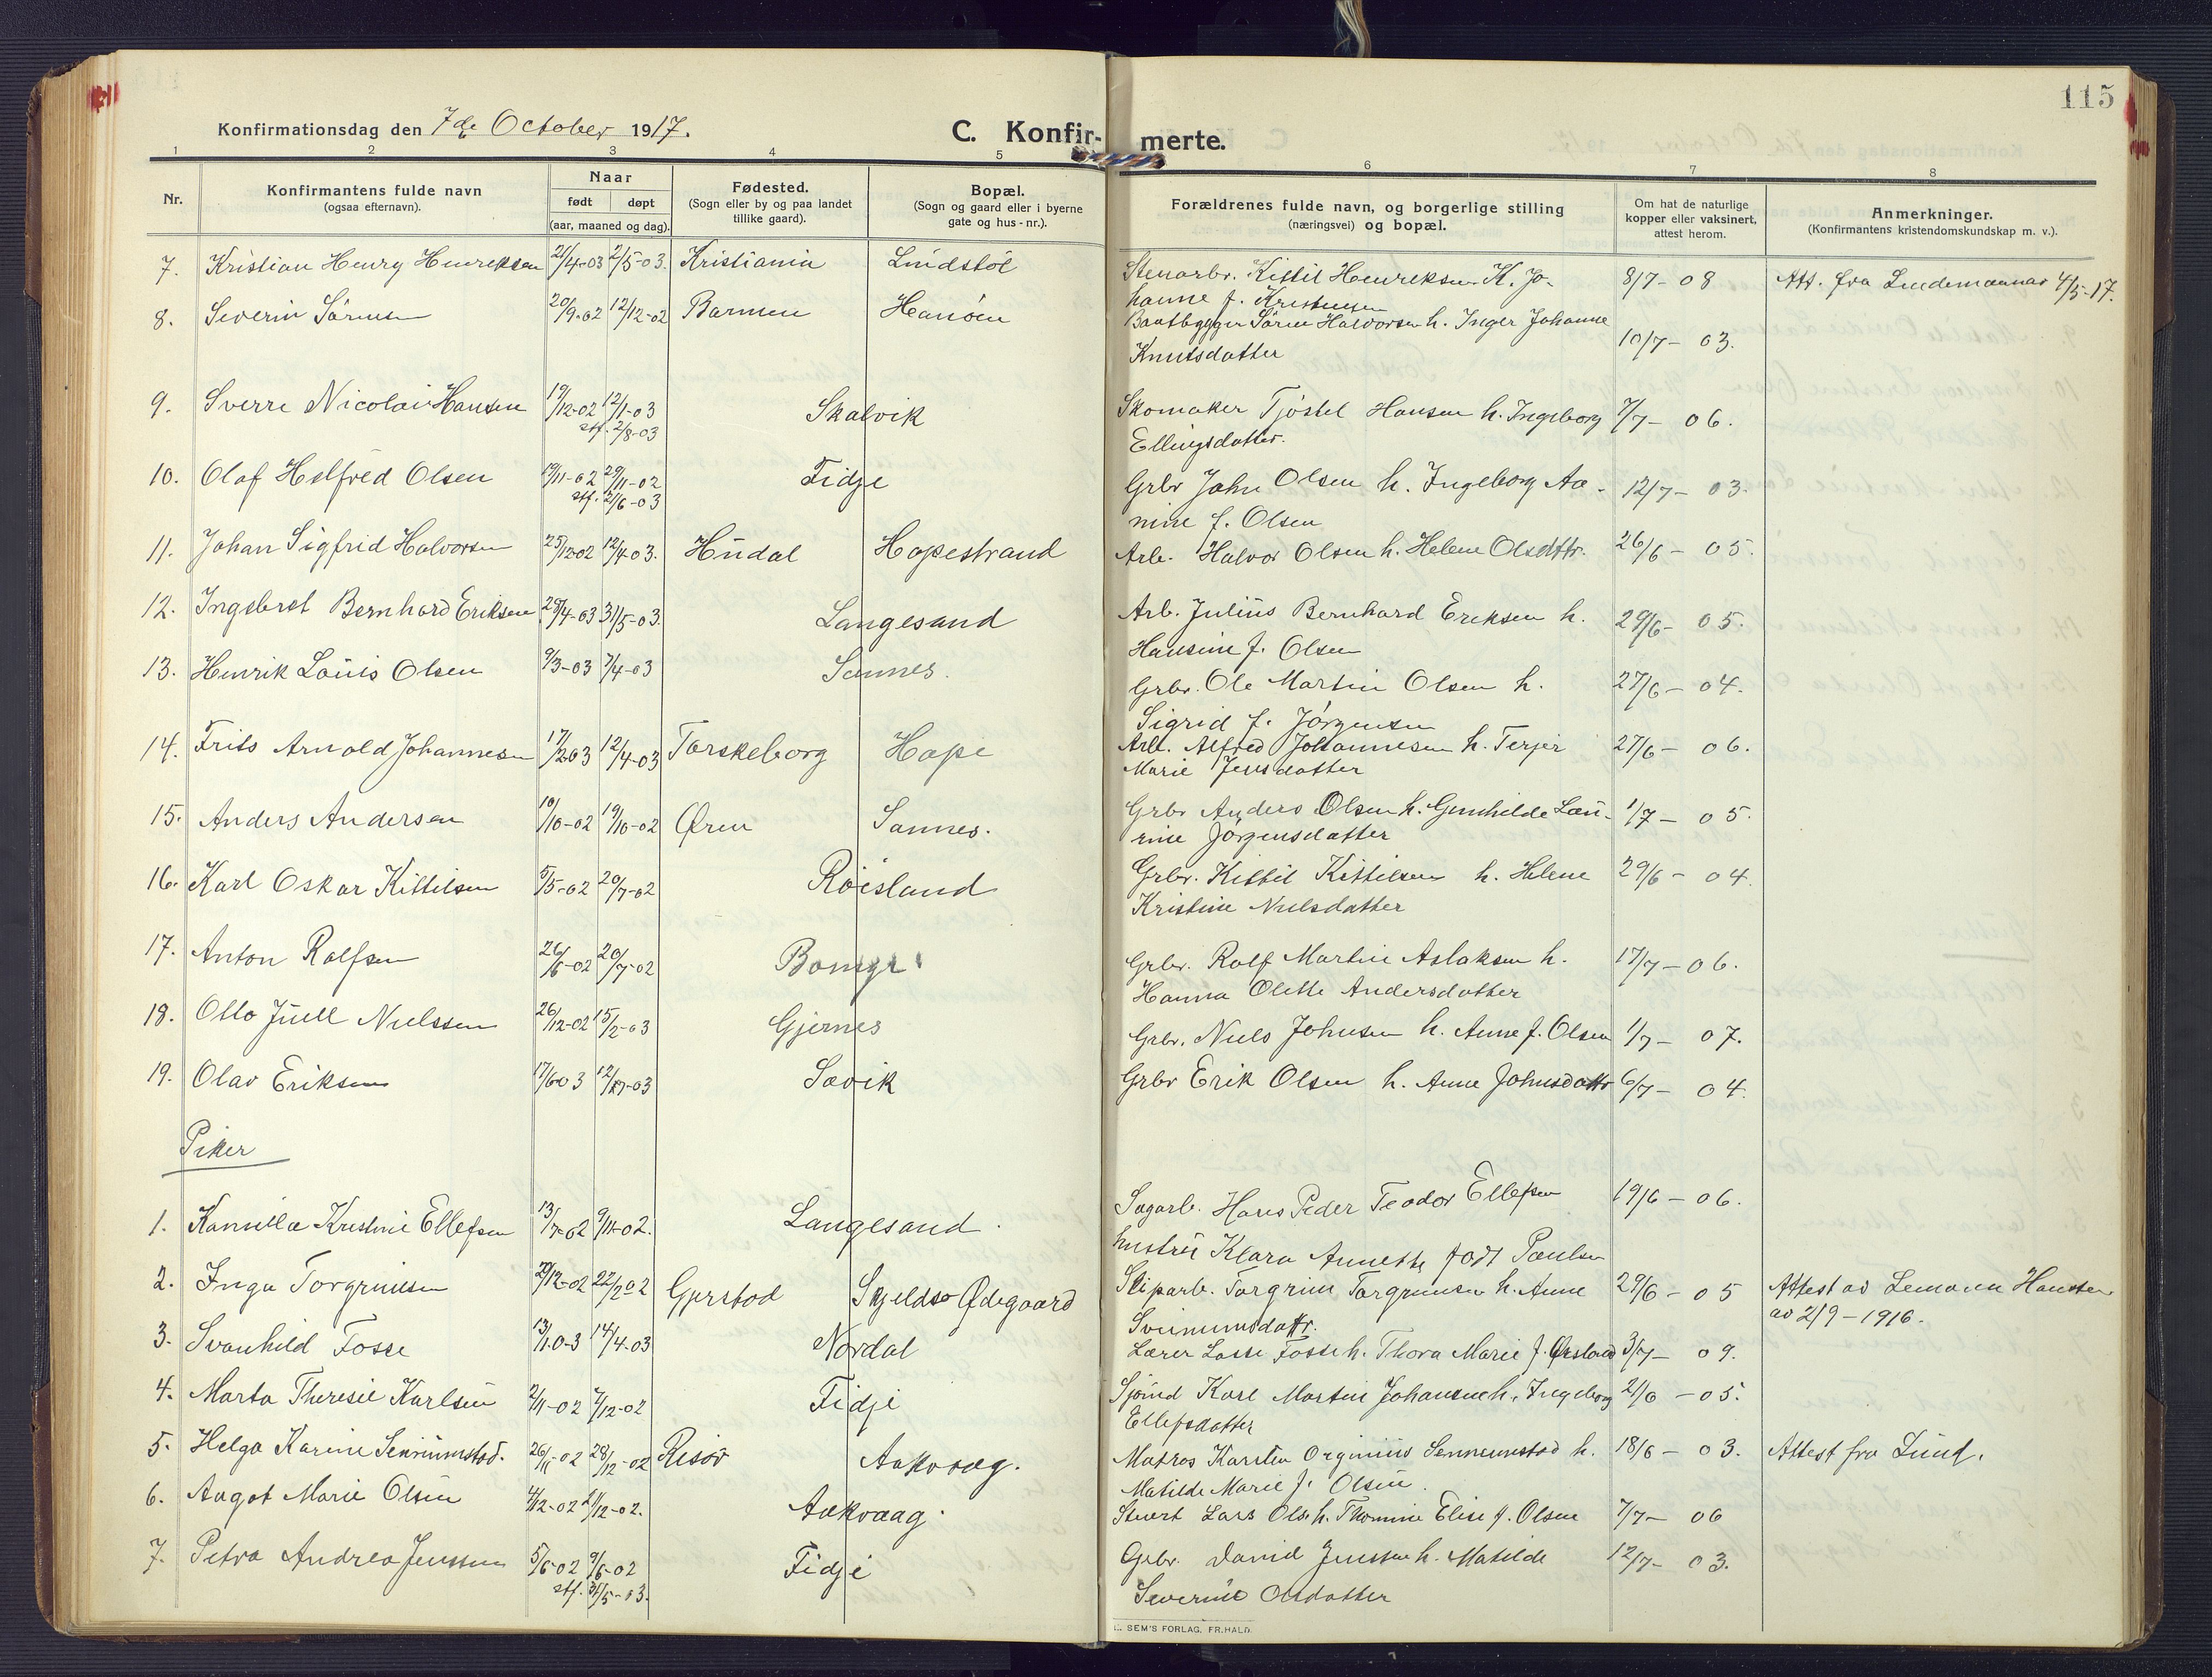 115
Konfirmationsdag den 7de October 1917.
C. Konfir- merte.
1 2 3 4 5 6 7 8
Nr.
Konfirmantens fulde navn
(ogsaa efternavn).
Naar
født døpt
(aar, maaned og dag).
Fødested.
(Sogn eller by og paa landet
tillike gaard).
Bopæl.
(Sogn og gaard eller i byerne
gate og hus-nr.).
Forældrenes fulde navn, og borgerlige stilling
(næringsvei) og bopæl.
Om hat de naturlige
kopper eller vaksinert,
attest herom.
Anmerkninger.
(Konfirmantens kristendomskundskap m. v.).
7. Kristian Henry Henriksen 21/4-03 2/5-03. Kristiania Lindstøl Stenarbr. Kittil Henriksen K. Jo- 8/7- 08 Att. fra Lindemannar 4/5-17.
hanne f. Kristensen
8. Severin Sørensen 20/9-02 12/12-02 Barmen Hansøen Baatbygger Søren Halvorsen h. Inger Johanne 10/7- 03.
Knutsdatter
9. Sverre Nicolai Hansen 19/12-02 12/1-03 Skalvik Skomaker Tjøstel Hansen h. Ingeborg 7/7- 06.
stf. 2/8-03 Ellingsdatter.
10. Olaf Helfred Olsen 19/11-02 29/11-02 Fidje Grbr John Olsen h. Ingeborg Aa- 12/7- 03.
stf. 2/6-03 nine f. Olsen
11. Johan Sigfrid Halvorsen 25/12-02 12/4-03. Hüdal Hopestrand Arb. Halvor Olsen h. Helene Olsdttr. 26/6- 05.
12. Ingebret Bernhard Eriksen 28/4-03 31/5-03. Langesand Arb. Julius Bernhard Ereksen h. 29/6- 05.
Hansine f. Olsen
13. Henrik Louis Olsen 9/3-03 7/4-03 Sannes. Grbr. Ole Martin Olsen h. 27/6- 04.
Sigrid f. Jörgensen
14. Frits Arnold Johannesen 17/203 12/4-03 Torskeborg Hope Arb. Alfred Johannesen h. Terjer 27/6- 06.
Marie Jensdatter
15. Anders Andersen 10/10-02 19/10-02 Øren Sannes. Grbr Anders Olsen h. Gunhilde Lau- 1/7- 05.
rine Jörgensdatter
16. Karl Oskar Kittilsen 5/5-02 20/7-02 Røisland Grbr. Kittil Kittilsen h. Helene 29/6- 04.
Kristine Nielsdatter
17. Anton Rolfsen 26/6-02 20/7-02 Grbr. Rolf Martin Aslaksen h. 17/7-06.
Hanna Olette Andersdatter
18. Otto Juell Nielssen 26/12-02 15/2-03 Gjernes Grbr. Niels Johnsen h. Anne f. Olsen 1/7- 07.
19. Olav Eriksen 17/603 12/7-03 Savik Grbr Erik Olsen h. Anne Johnsdattr 6/7- 04.
Piker
1. Kamilla Kristine Ellefsen 13/7-02 9/11-02. Langesand. Sagarb. Hans Peder Teodor Ellefsen 19/6-06.
hustru Klara Annette født Paulsen
2. Inga Torgrimsen 29/12-02 22/202 Gjerstad Skjeldsø Ødegaard Sliparb. Torgrim Torgrimsen h. Anne 29/6-05 Attest av Hansten
dattr. av 2/9-1916.
3. Svanhild Fosse 13/1.0-3 14/4-03 Nordal Lærer Lasse Fosse h. Thora Marie f. Ørsland 3/7- 09.
4. Marta Theresie Karlsen 2/11-02 7/12-02 Fidje Sjømd Karl Martin Johansen h. Ingeborg 21/6-05.
Ellefsdatter
5. Helga Karine Sennumstad. 26/11-02 28/12-02 Risør Aakvaag. Matros Karsten Orginius Sennumstad h. 18/6- 03. Attest fra Lund.
Matilde Marie f. Olsen.
6. Aagot Marie Olsen 4/12-02 21/12-02. Aakvaag. Stuert Lars Ols. h. Thomine Elise f. Olsen 7/7- 06
7. Petra Andrea Jenssen 5/6-02 9/6-02 Fidje Grbr. David Jenssen h. Matilde 12/7- 03.
stf. 31/5-03. Severine Olsdatter
SEM'S FORLAG. FR.HALD.